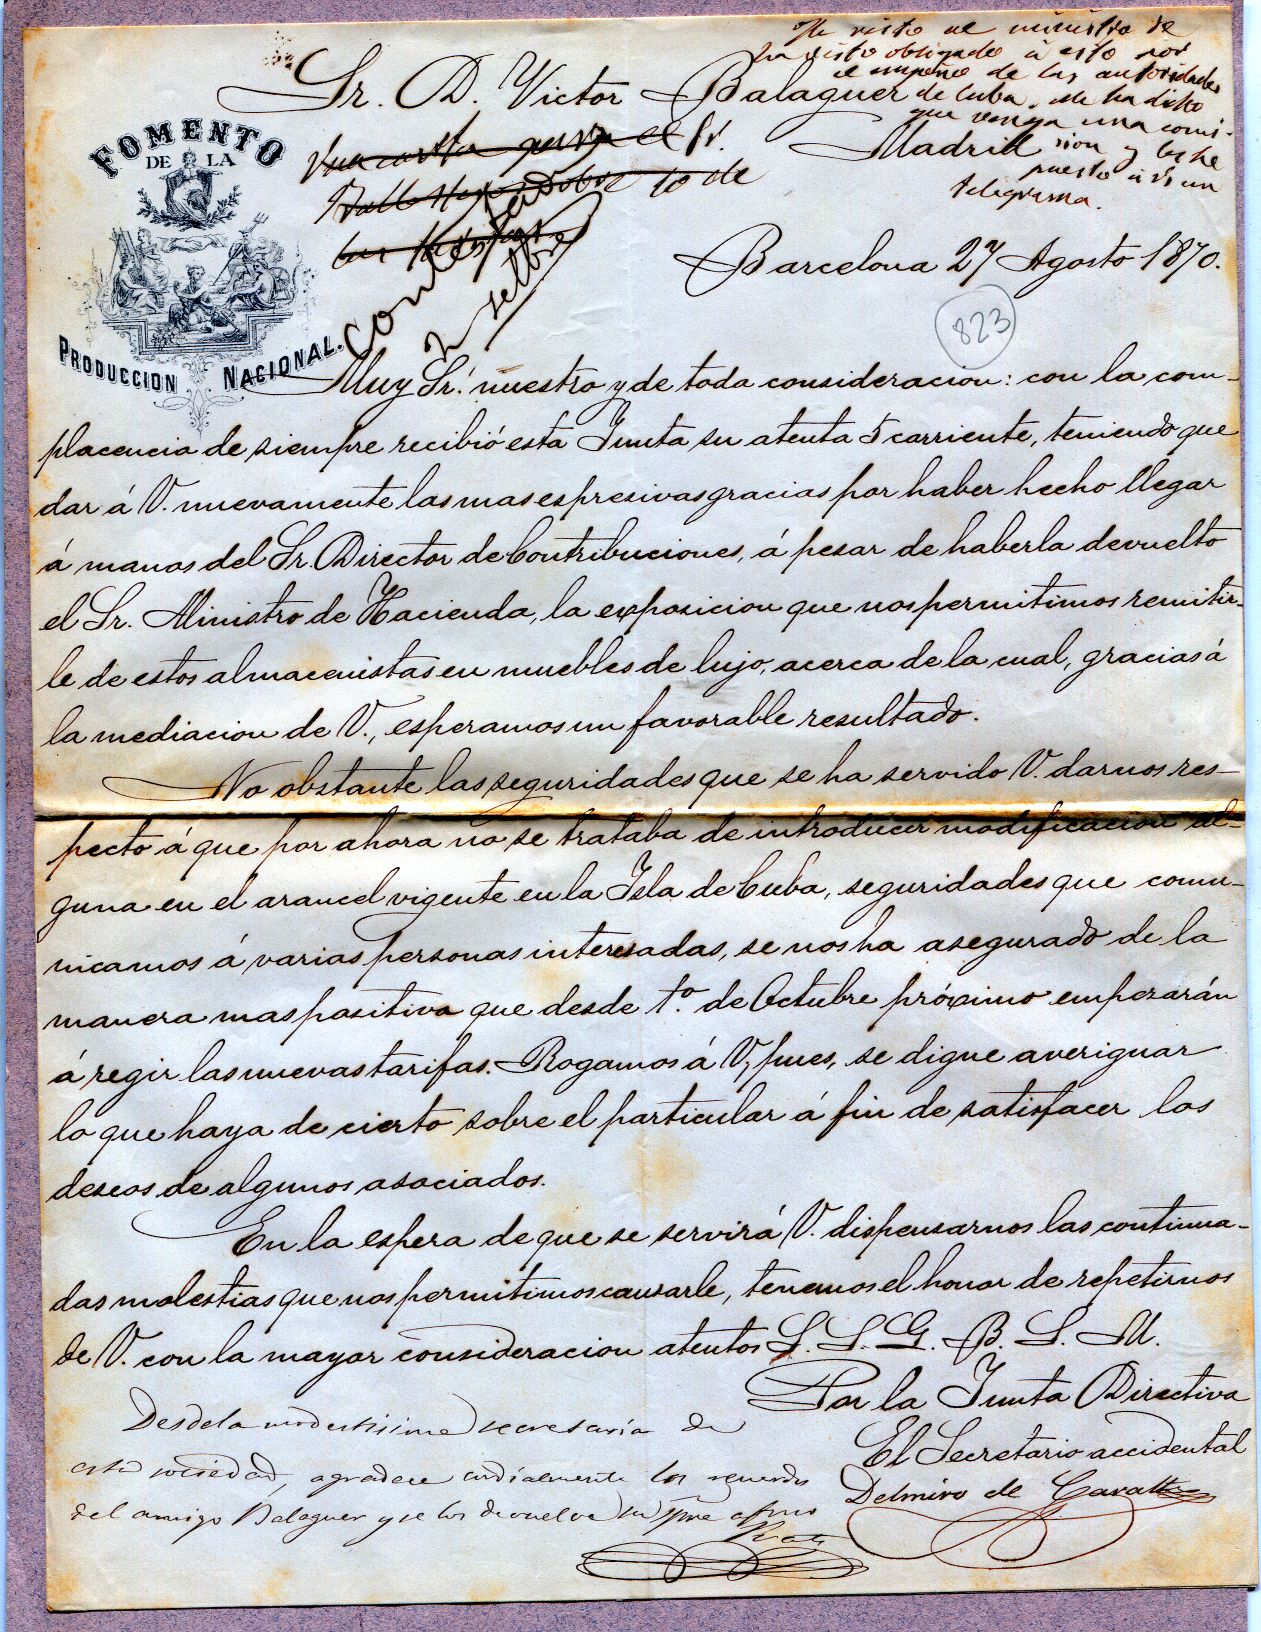 He visto al ministro se
ha visto obligado á esto por
el empeño de las autoridades
de Cuba. Me ha dicho
que venga una comi-
sion y les he
puesto á Vs un
telegrama.
Sr. D. Victor Balaguer
Madrid
FOMENTO
DE LA
PRODUCCION NACIONAL.
el Sr.
to de
contestado
2 setbre
Barcelona 27 Agosto 1870.
823
Muy Sr. nuestro y de toda consideracion: con la com-
placencia de siempre recibió esta Junta su atenta 5 corriente, teniendo que
dar á V. nuevamente las mas espresivas gracias por haber hecho llegar
á manos del Sr. Director de Contribuciones, á pesar de haberla devuelto
el Sr. Ministro de Hacienda, la exposicion que nos permitimos remitir-
le de estos almacenistas en muebles de lujo, acerca de la cual, gracias á
la mediacion de V., esperamos un favorable resultado.
No obstante las seguridades que se ha servido V. darnos res-
pecto á que por ahora no se trataba de introducir modificacion al-
guna en el arancel vigente en la Isla de Cuba, seguridades que comu-
nicamos á varias personas interesadas, se nos ha asegurado de la
manera mas positiva que desde 1.º de Octubre próximo empezarán
á regir las nuevas tarifas. Rogamos á V, pues, se digne averiguar
lo que haya de cierto sobre el particular á fin de satisfacer los
deseos de algunos asociados.
En la espera de que se servirá V. dispensarnos las continua-
das molestias que nos permitimos causarle, tenemos el honor de repetirnos
de V. con la mayor consideracion atentos S. S. Q. B. S. M.
Por la Junta Directiva
El Secretario accidental
Delmiro de Caralt
Desde la modestisima secretaría de
esta sociedad, agradece cordialmente los recuerdos
del amigo Balaguer y se los devuelve su